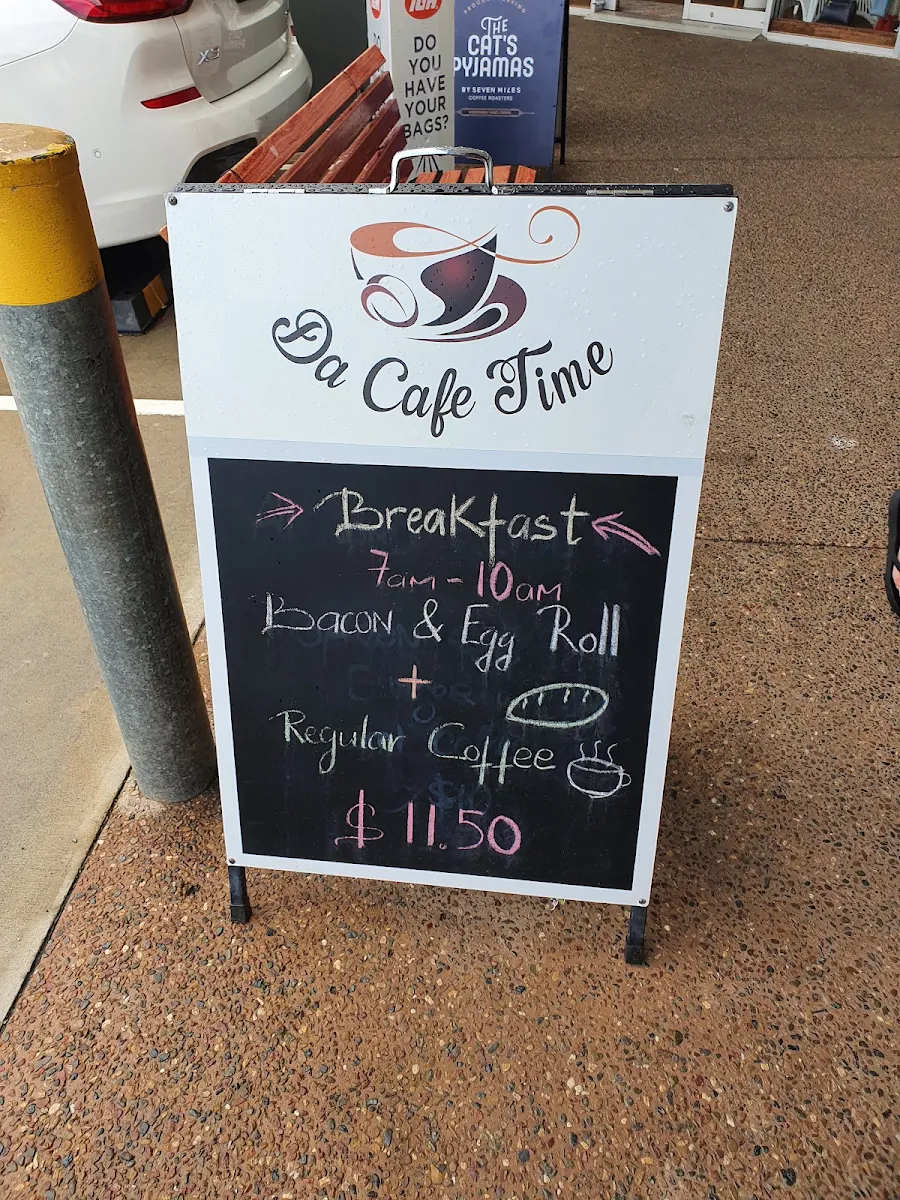 X3
IGA
DO
YOU
HAVE
YOUR
BAGS?
THE
CAT'S
PYJAMAS
BY SEVEN MILES
COFFEE ROASTERS
Da Cafe Time
Breakfast
7am - 10am
Bacon & Egg Roll
+
Regular Coffee
$11.50